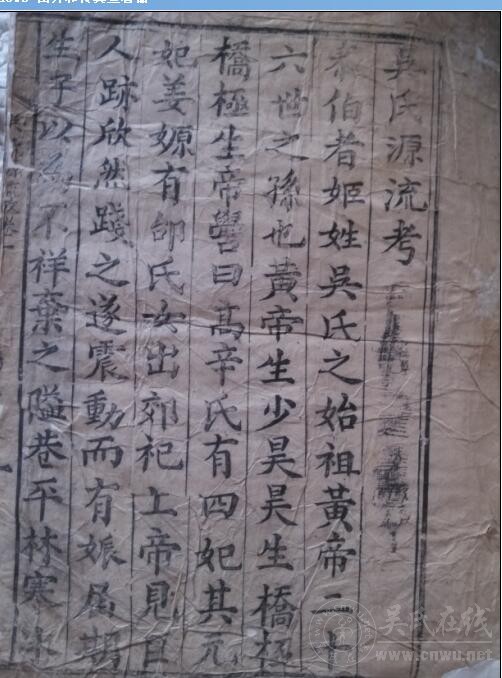 吳氏源流考
泰伯者姬姓吳氏之始祖黃帝二十
六世之孫也黃帝生少昊昊生橋極
橋極生帝嚳曰高辛氏有四妃其元
妃姜嫄有邰氏女出郊祀上帝見巨
人跡欣然踐之遂震動而有娠居期
生子以為不祥棄之隘巷平林寒冰
吴氏在线
www.cnwu.net